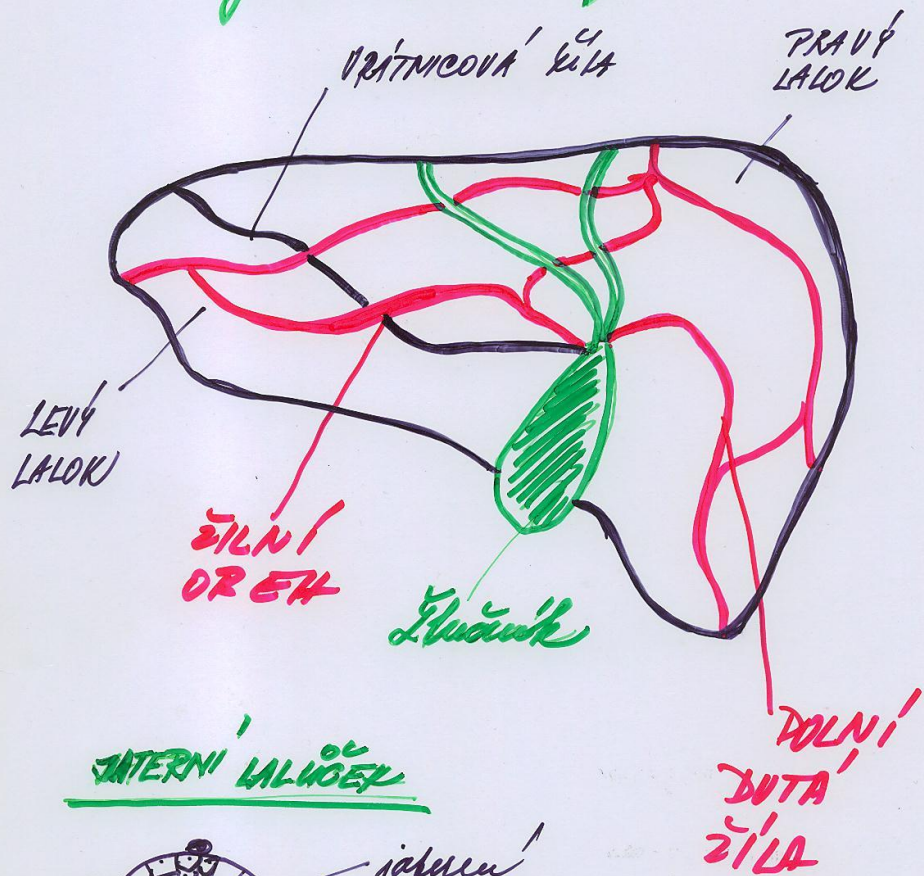 VRÁTNICOVÁ ŽÍLA
PRAVÝ
LALOK
LEVÝ
LALOK
ŽILNÍ
OBEH
Žlučník
DOLNÍ
DUTÁ
ŽÍLA
JATERNÍ LALŮČEK